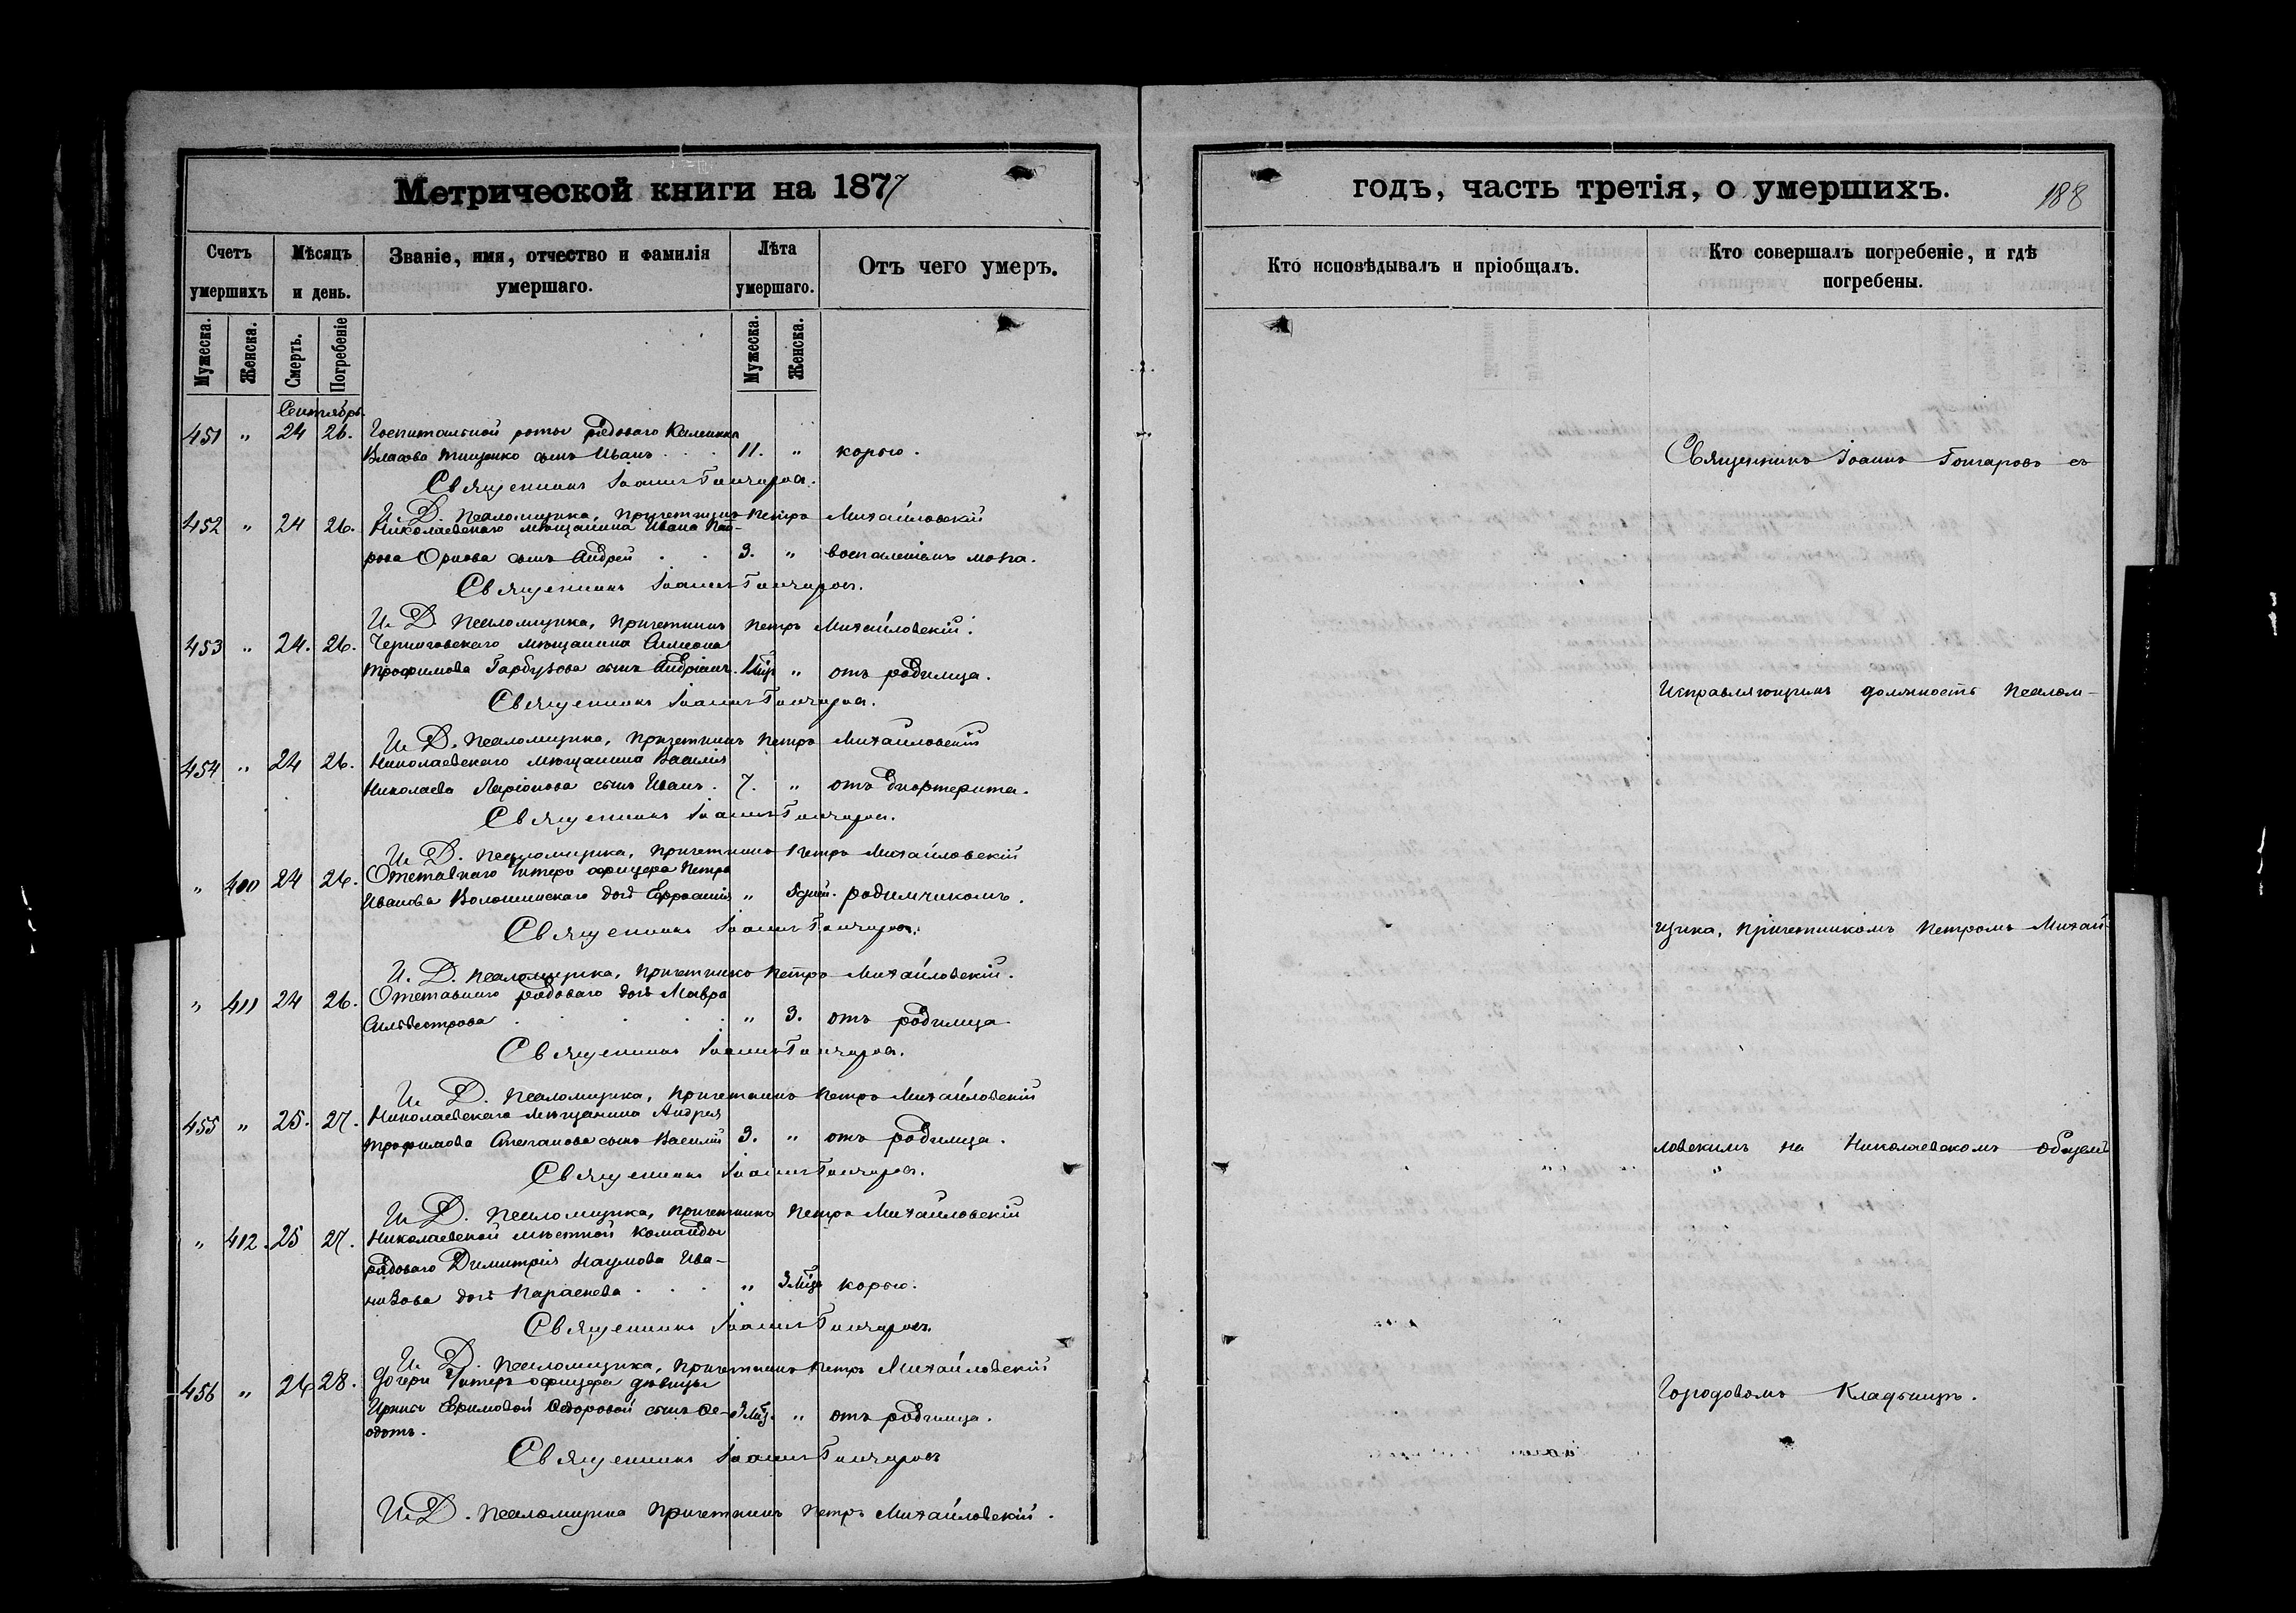 Метрической книги на 1877
годъ, часть третія, о умершихъ.
188
Счетъ умершихъ
Мѣсяцъ и день.
Званіе, имя, отчество и фамилія умершаго.
Лѣта умершаго.
Отъ чего умеръ.
Кто исповѣдывалъ и пріобщалъ.
Кто совершалъ погребеніе, и гдѣ погребены.
Мужеска. Женска. Смерть. Погребеніе Мужеска. Женска.
Сентябрь.
451 " 24 26. Госпитальной роты рядоваго Калинника
Власова Тищенко сынъ Иванъ . . . 11. " корью.
Священникъ Іоаннъ Гончаровъ.
И. Д. Псаломщика, Причетникъ Петръ Михайловскій
452 " 24 26. Николаевскаго мѣщанина Ивана Пет-
рова Орлова сынъ Андрей . . 3. " воспаленіемъ мозга.
Священникъ Іоаннъ Гончаровъ.
И. Д. Псаломщика, Причетникъ Петръ Михайловскій.
453 " 24. 26. Черниговскаго мѣщанина Симеона
Трофимова Гарбузова сынъ Андріанъ. 1 мѣс " отъ родимца.
Священникъ Іоаннъ Гончаровъ.
И. Д. Псаломщика, Причетникъ Петръ Михайловскій
454 " 24 26. Николаевскаго мѣщанина Василія
Николаева Ларіонова сынъ Иванъ. 7. " отъ дифтерита.
Священникъ Іоаннъ Гончаровъ.
И. Д. Псаломщика, Причетникъ Петръ Михайловскій
" 410 24 26. Отставнаго Унтеръ офицера Петра
Иванова Волошинскаго дочь Ефросинія " родимчикомъ.
Священникъ Іоаннъ Гончаровъ.
И. Д. Псаломщика, Причетникъ Петръ Михайловскій.
" 411 24 26. Отставнаго рядоваго дочь Мавра
Сильвестрова . . . . . " 3. отъ родимца
Священникъ Іоаннъ Гончаровъ.
И. Д. Псаломщика, Причетникъ Петръ Михайловскій
455 " 25. 27. Николаевскаго мѣщанина Андрея
Трофимова Степанова сынъ Василій 3. " отъ родимца.
Священникъ Іоаннъ Гончаровъ.
И. Д. Псаломщика, Причетникъ Петръ Михайловскій
" 412. 25 27. Николаевской мѣстной команды
рядоваго Димитрія Наумова Ива-
низова дочь Параскева . . . " 3 мѣс корью.
Священникъ Іоаннъ Гончаровъ.
И. Д. Псаломщика, Причетникъ Петръ Михайловскій
456 " 26 28. Дочери Унтеръ офицера дѣвицы
Ирины Ефимовой Ѳедоровой сынъ Ѳе- 3 мѣс. " отъ родимца.
одотъ.
Священникъ Іоаннъ Гончаровъ
И. Д. Псаломщика Причетникъ Петръ Михайловскій.
Священникъ Іоаннъ Гончаровъ съ
Исправляющимъ должность Псалом-
щика, Причетникомъ Петромъ Михай-
ловскимъ на Николаевскомъ общемъ
Городовомъ Кладбищѣ.